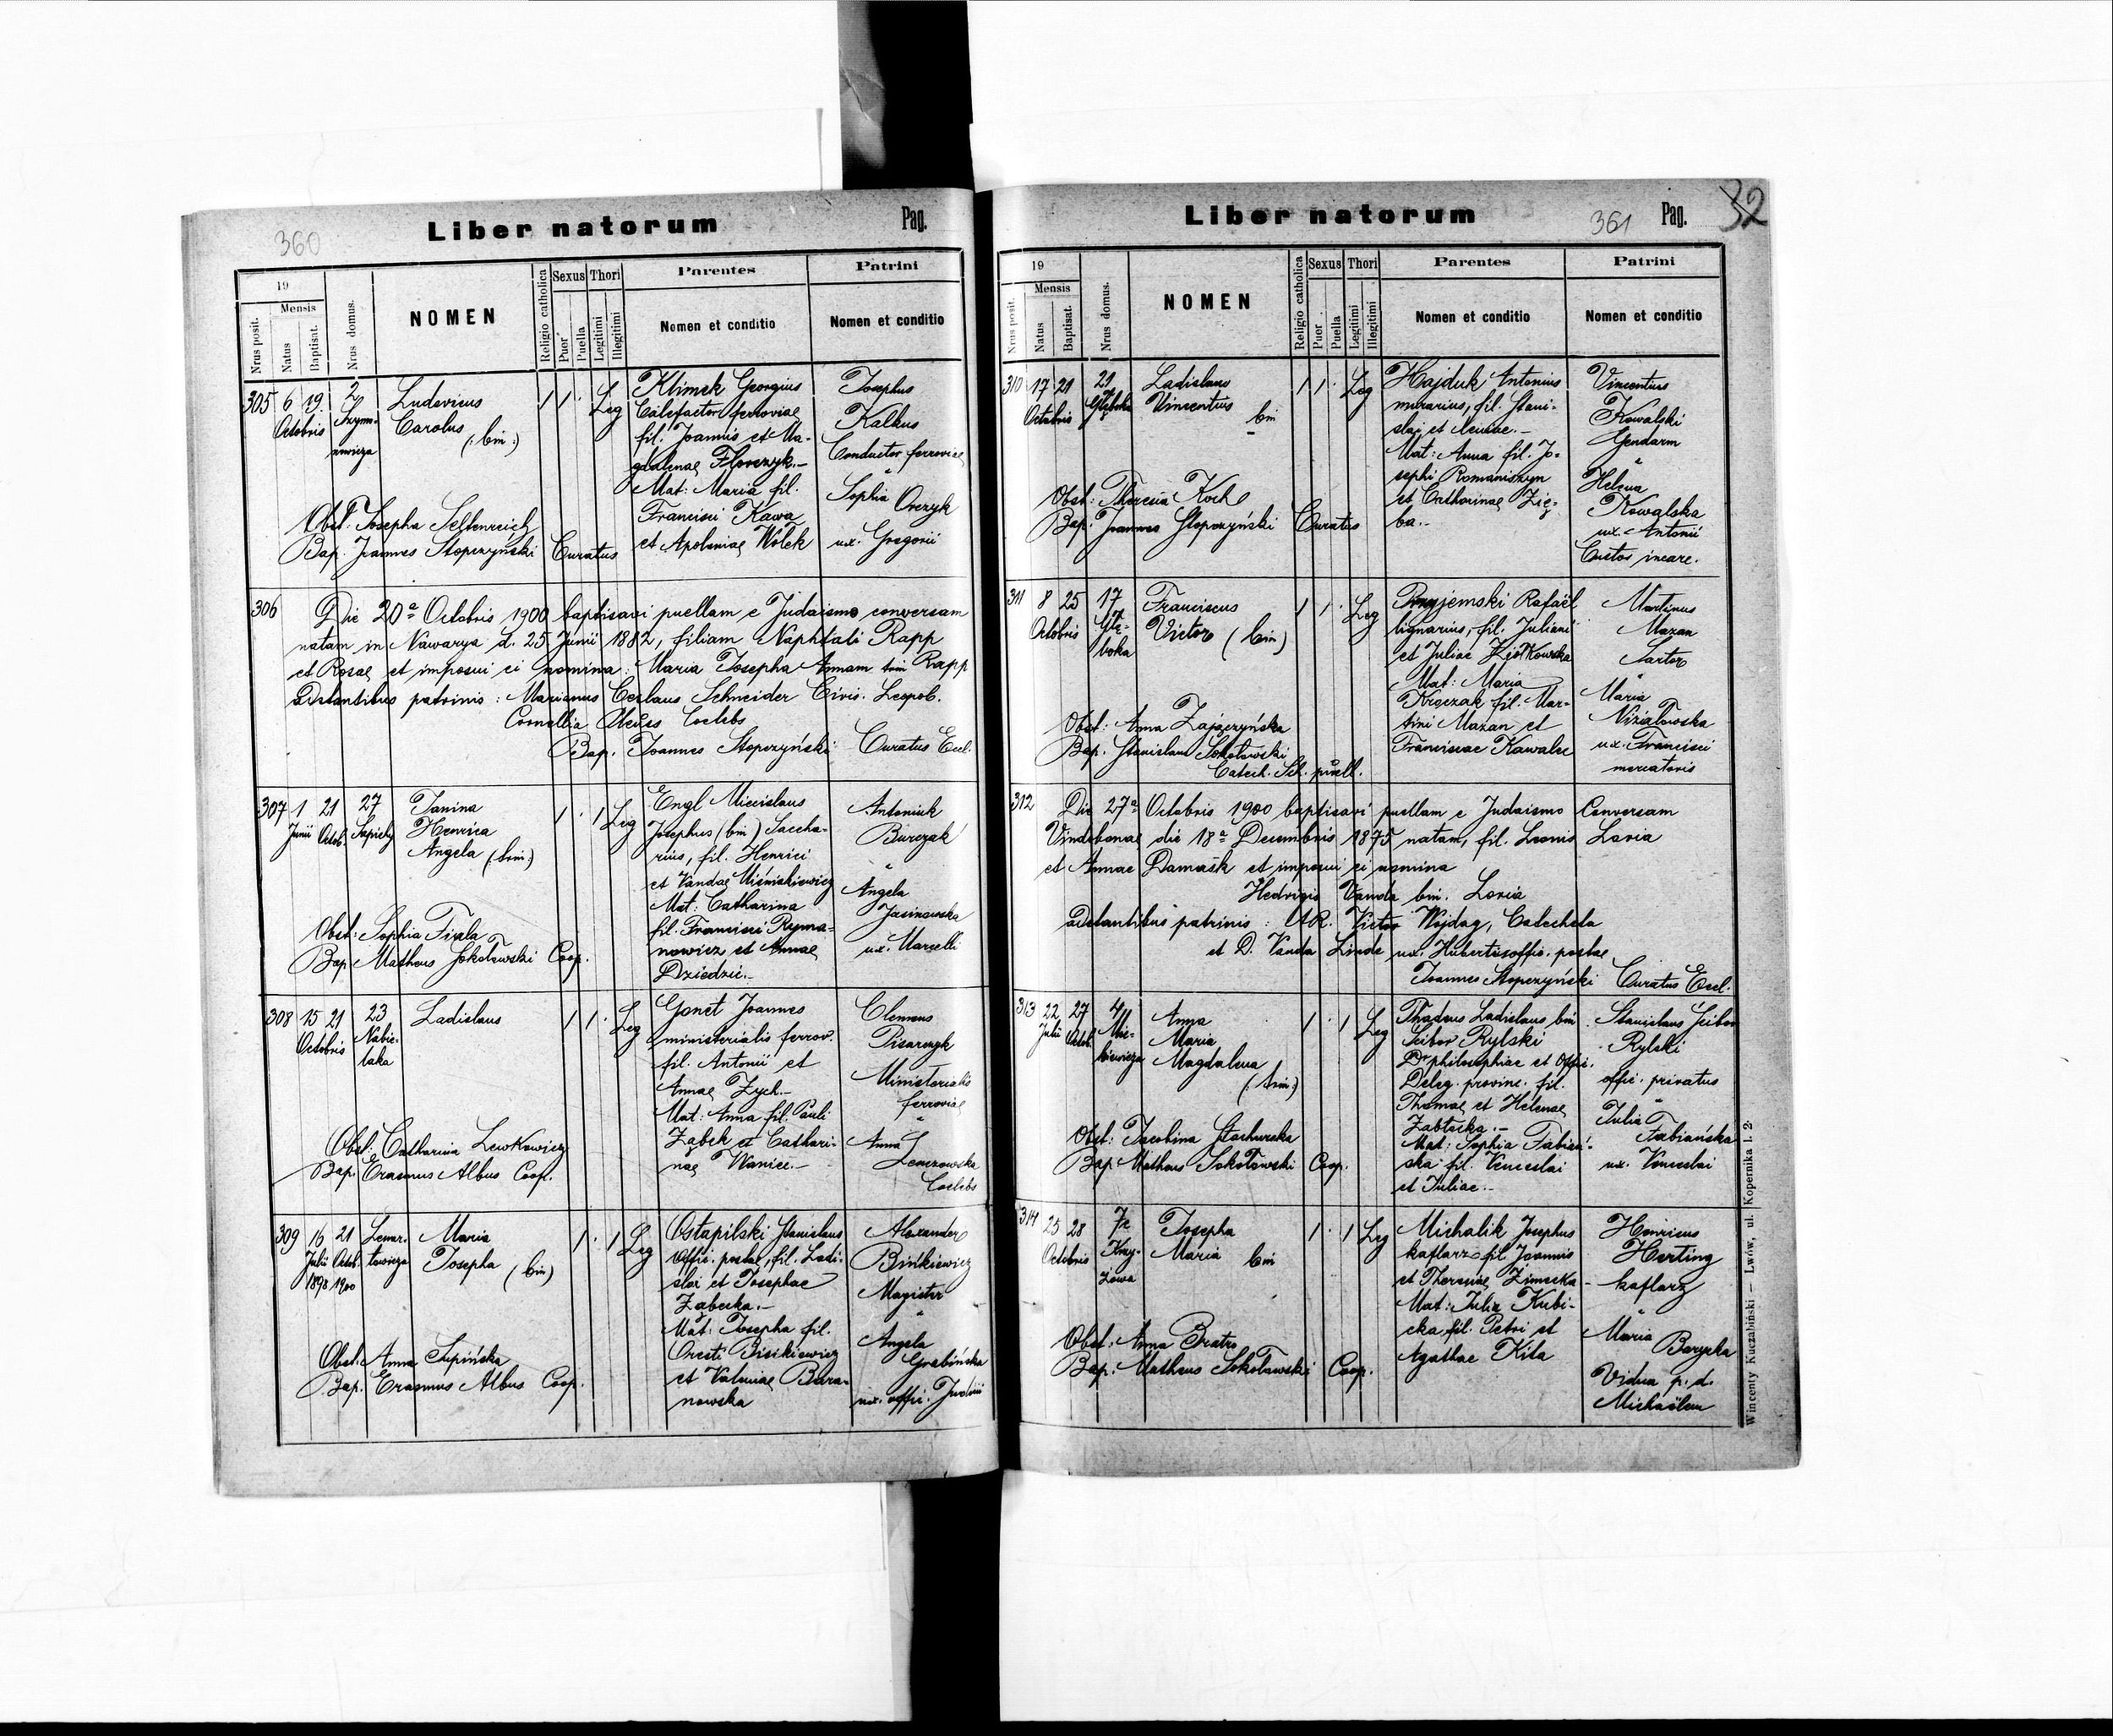 360
Liber natorum
Pag.
19
Mensis
Nrus posit.
Natus
Baptisat.
Nrus domus.
NOMEN
Religio catholica
Sexus
Puor
Puella
Thori
Legitimi
Illegitimi
Parentes
Nomen et conditio
Patrini
Nomen et conditio
305 6 19. 2
Octobris
Ludovicus
Carolus (bin:)
1 1 Leg
Klimek Georgius
Calefactor ferroviae
fil. Joannis et Ma-
gdalenae Florczyk.-
Mat: Maria fil.
Francisci Kawa
et Apoloniae Wołek
Josephus
Kalkus
Conductor ferroviae
Sophia Orczyk
ux. Gregorii
Obst: Josepha Seltenreich
Bap. Joannes Stopczyński Curatus
306
Die 20a Octobris 1900 baptisavi puellam e Judaismo conversam
natam in Nawarya d. 25 Junii 1882, filiam Naphtali Rapp
et Rosae et imposui ei nomina: Maria Josepha Annam trin Rapp
Adstantibus patrinis: Marianus Ceslaus Schneider Civis. Leopol.
Coelebs
Bap. Joannes Stopczyński Curatus Eccl.
307 1 21 27
Junii Octob. Sapiehy
Janina
Henrica
Angela (trin:)
1 1 Leg
Engl Miecislaus
Josephus (bin) Saccha-
rius, fil. Henrici
et Vandae Miśniakiewicz
Mat: Catharina
fil. Francisci Ryma-
nowicz et Annae
Dziedzic.-
Antoniuk
Burczak
Angela
Jasinowska
ux. Marcelli
Obst: Sophia Firla
Bap Matheus Sokołowski Coop.
308 15 21 23
Octobris
Nabie-
laka
Ladislaus
1 1 Leg
Gonet Joannes
ministerialis ferrov.
fil. Antonii et
Annae Zych.-
Mat: Anna fil. Pauli
Ząbek et Cathari-
nae Wanicc.-
Clemens
Pisarczyk
Ministerialis
ferroviae
Anna
Lenczowska
Coelebs
Obst: Catharina Lewkowicz
Bap. Erasmus Albus Coop.
309 16 21 Lenar-
Julii Octob. towicza
1898 1900
Maria
Josepha (bin)
1 1 Leg
Ostapilski Stanislaus
offic. postae, fil. Ladi-
slai et Josephae
Ząbecka.-
Mat: Josepha fil.
Oresti Bisikiewicz
et Valeriae Bara-
nowska
Alexander
Bińkiewicz
Magister
Angela
Grabińska
ux. offic.
Obst: Anna Supińska
Bap. Erasmus Albus Coop.
Liber natorum
361
Pag.
32
19
Mensis
Nrus posit.
Natus
Baptisat.
Nrus domus.
NOMEN
Religio catholica
Sexus
Puor
Puella
Thori
Legitimi
Illegitimi
Parentes
Nomen et conditio
Patrini
Nomen et conditio
310 17 21 21
Octobris Głęboka
Ladislaus
Vincentius bin
1 1 Leg
Hajduk Antonius
murarius, fil. Stani-
slai et
Mat: Anna fil. Jo-
sephi Romaniszyn
et Catharinae Zię-
ba.-
Vincentius
Kowalski
Gendarm
Helena
Kowalska
ux. Antonii
Custos incarc.
Obst: Theresia Koch
Bap. Joannes Stopczyński Curatus
311 8 25 17
Octobris
Głę-
boka
Franciscus
Victor (bin)
1 1 Leg
Przyjemski Rafaël
lignarius, fil. Juliani
et Juliae Ziółkowska
Mat: Maria
Kroczak fil. Mar-
tini Mazan et
Franciscae Kawalec
Martinus
Mazan
Sartor
Maria
Niziołowska
ux. Francisci
mercatoris
Obst: Anna Zajączyńska
Bap. Stanislaus Sokołowski
Catech. Sch. puell.
312
Die 27a Octobris 1900 baptisavi puellam e Judaismo Conversam
Vindobonae die 18a Decembris 1875 natam, fil. Leonis Loria
et Annae Damašk et imposui ei nomina
Hedvigis Vanda bin. Loria
adstantibus patrinis: AR. Victor Wojdag, Catecheta
et D. Vanda Linde ux. Huberti offic. postae
Joannes Stopczyński Curatus Eccl.
313 22 27 4
Julii Octob.
Mic-
kiewicza
Anna
Maria
Magdalena
(trin:)
1 1 Leg
Thadeus Ladislaus bin
Scibor Rylski
Dr philosophiae et Offic.
Deleg. provinc. fil.
Thomae et Helenae
Zabłocka.-
Mat: Sophia Fabiań-
ska fil. Venceslai
et Juliae.-
Stanislaus Scibor
Rylski
offic. privatus
Julia
Fabiańska
ux. Venceslai
Obst: Jacobina Stachurska
Bap. Matheus Sokołowski Coop.
314 25 28
Octobris
Krzy-
żowa
Josepha
Maria bin
1 1 Leg
Michalik Josephus
kaflarz fil. Joannis
et Theresiae Zimecka-
Mat: Julia Kubi-
cka fil. Petri et
Agathae Kita
Henricus
Herting
kaflarz
Maria
Barycka
Vidua p. d.
Michaëlem
Obst: Anna Bratro
Bap. Matheus Sokołowski Coop.
Wincenty Kuczabiński — Lwów, ul. Kopernika l. 2